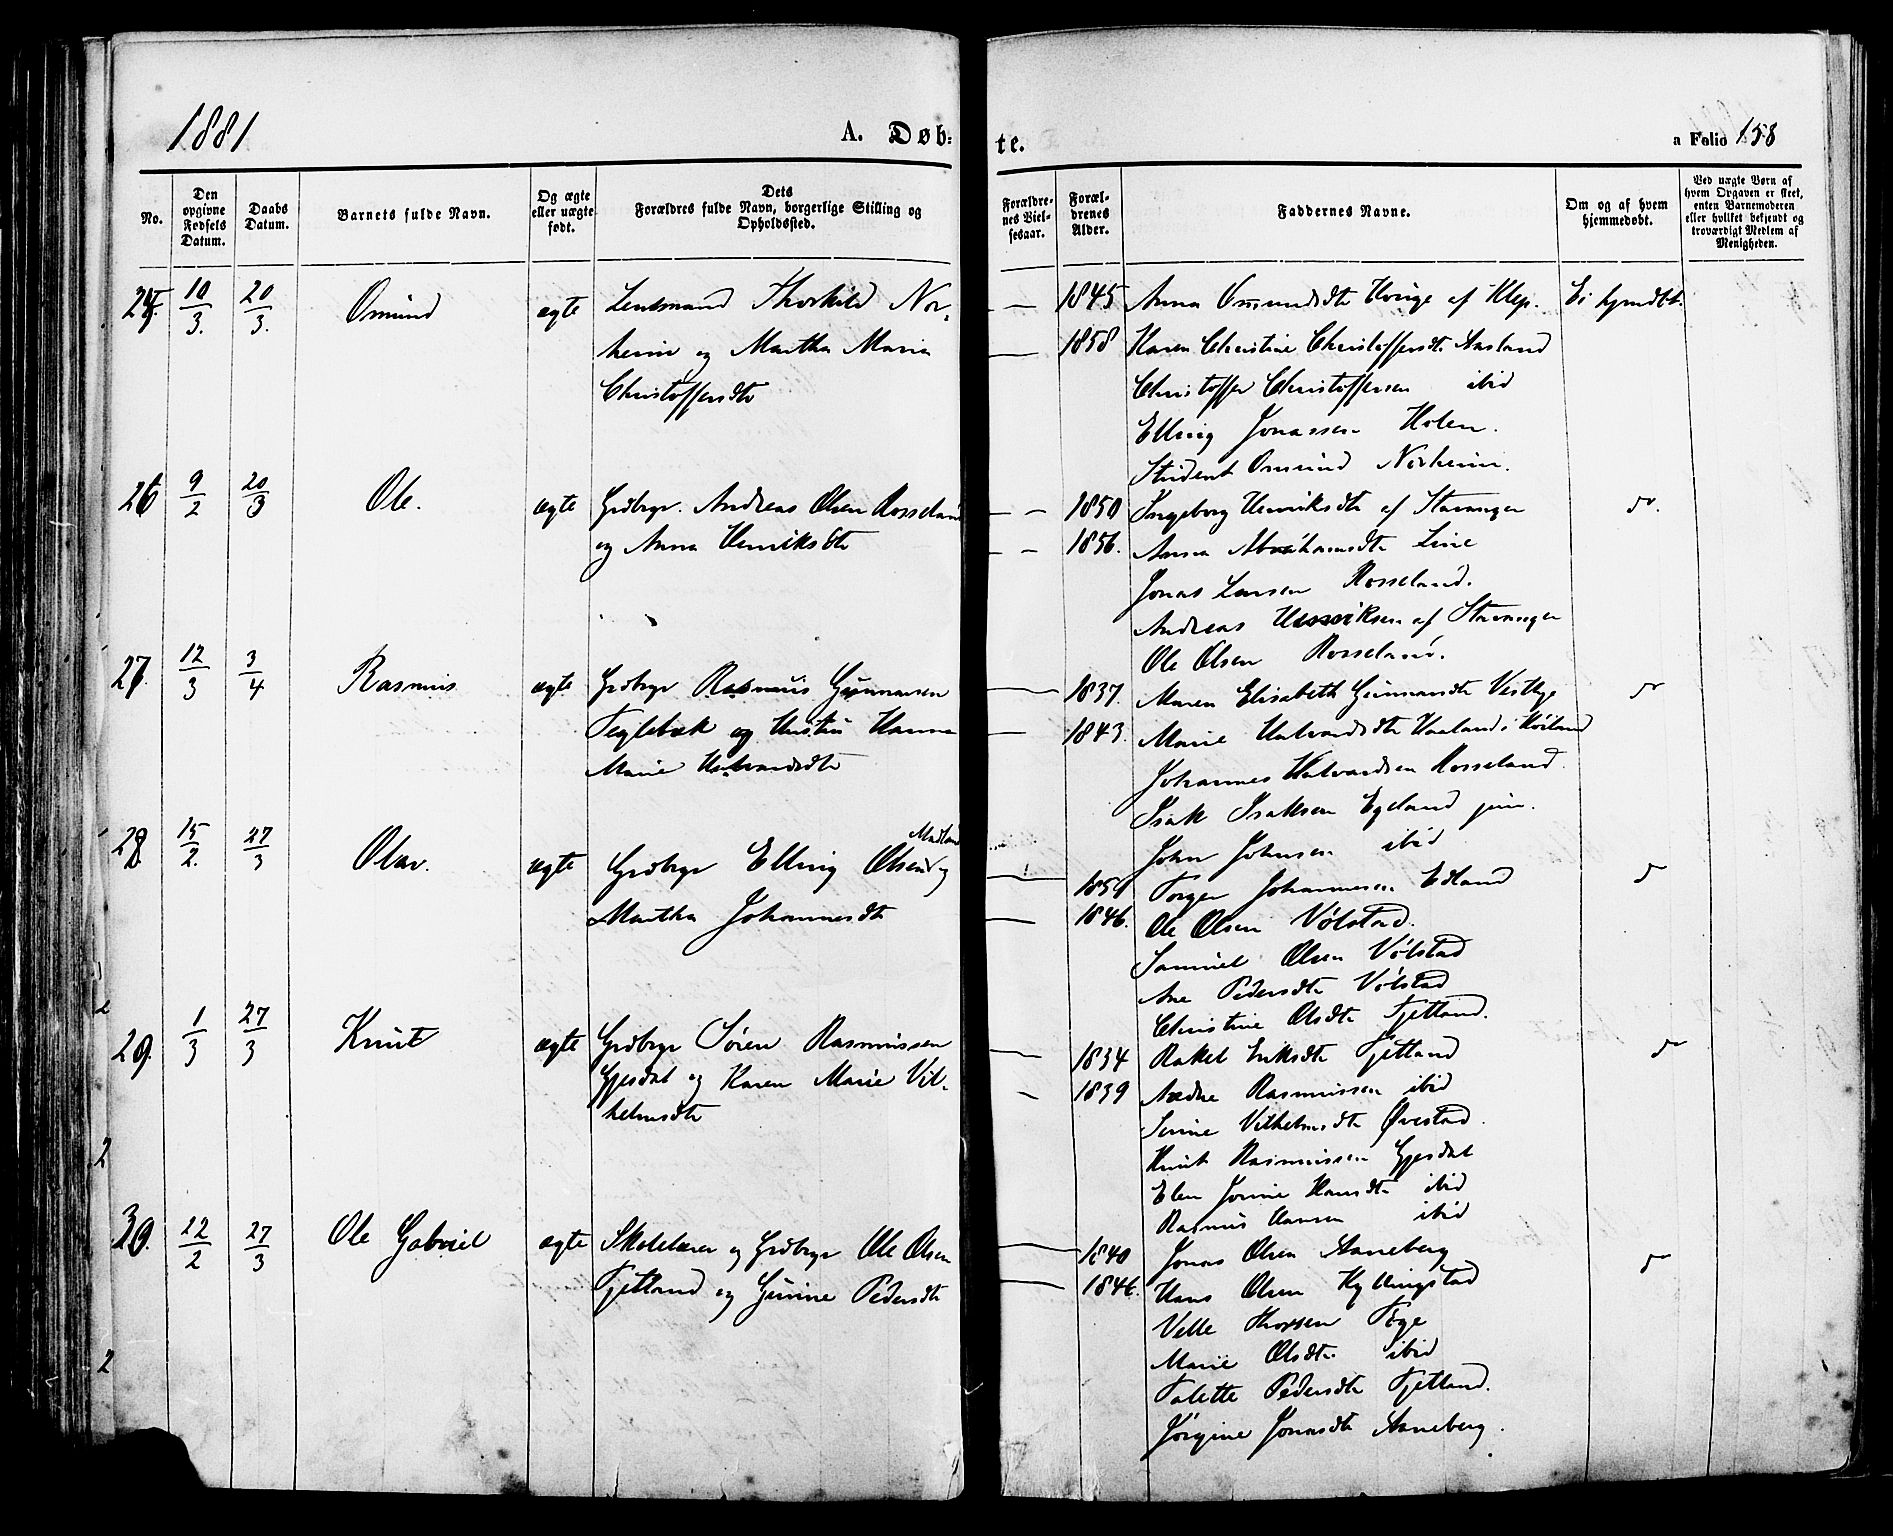 1881
A. Døb=
te.
a Folio 158
No.
Den opgivne Fødsels Datum.
Daabs Datum.
Barnets fulde Navn.
Og ægte eller uægte født.
Dets Forældres fulde Navn, borgerlige Stilling og Opholdssted.
Forældrenes Vielsesaar.
Forældrenes Alder.
Faddernes Navne.
Om og af hvem hjemmedøbt.
Ved uægte Børn af hvem Opgaven er skeet, enten Barnemoderen eller hvilket bekjendt og troværdigt Medlem af Menigheden.
25. 10/3. 20/3. Omund ægte Lensmand Thorkild Nor-
heim og Martha Maria
Christoffersdtr
1845 Anna Ommundsdtr Horige af Klep. Ei hjmdbt.
1858 Karen Christine Christoffersdtr. Aasland
Christoffer Christoffersen ibid
Elling Jonassen Holen.
Student Ommund Norheim.
26 9/2 20/3 Ole. ægte Grdbrgr. Andreas Olsen Rosseland
og Anna Henriksdtr
1850 Ingeborg Henriksdtr af Stavanger do.
1856. Anna Abrahamsdtr Line
Jonas Larsen Rosseland.
Andreas Henriksen af Stavanger
Ole Olsen Rosseland.
27. 12/3 3/4 Rasmus ægte Grdbrgr Rasmus Gunnarsen
Teglebæk og Hustru Hanne
Marie Halvardsdtr
1837. Maren Elisabeth Gunnarsdtr Vestlye do
1843. Marie Halvardsdtr Haaland i Høiland
Johannes Halvardsen Rosseland.
Isak Isaksen Egeland jun.
John Johnsen ibid
28 15/2. 27/3 Olav. ægte Grdbrgr Elling Olsen Madland og
Martha Johannesdtr
1851 Torger Johannesen Edland do
1846. Ole Olsen Vølstad.
Samuel Olsen Vølstad
Ane Pedersdtr Vølstad
Christine Olsdtr Fjetland.
29. 1/3 27/3 Knut ægte Grdbrgr Sören Rasmussen
Gjesdal og Karen Marie Vil-
helmsdtr
1834 Rakel Eriksdtr Fjetland do
1839 Nædne Rasmussen ibid
Serine Vilhelmsdtr Øvestad.
Knut Rasmussen Gjesdal
Elen Jorine Hansdtr ibid
Rasmus Hansen ibid
30. 22/2 27/3 Ole Gabriel ægte Skolelærer og Grdbrgr Ole Olsen
Fjetland og Gurine Pedersdtr
1840 Jonas Olsen Aaneberg do
1846. Hans Olsen Kyllingstad
Velle Thorsen Tøge
Marie Olsdtr. ibid
Talette Pedersdtr Fjetland.
Jörgine Jonasdtr Aaneberg.